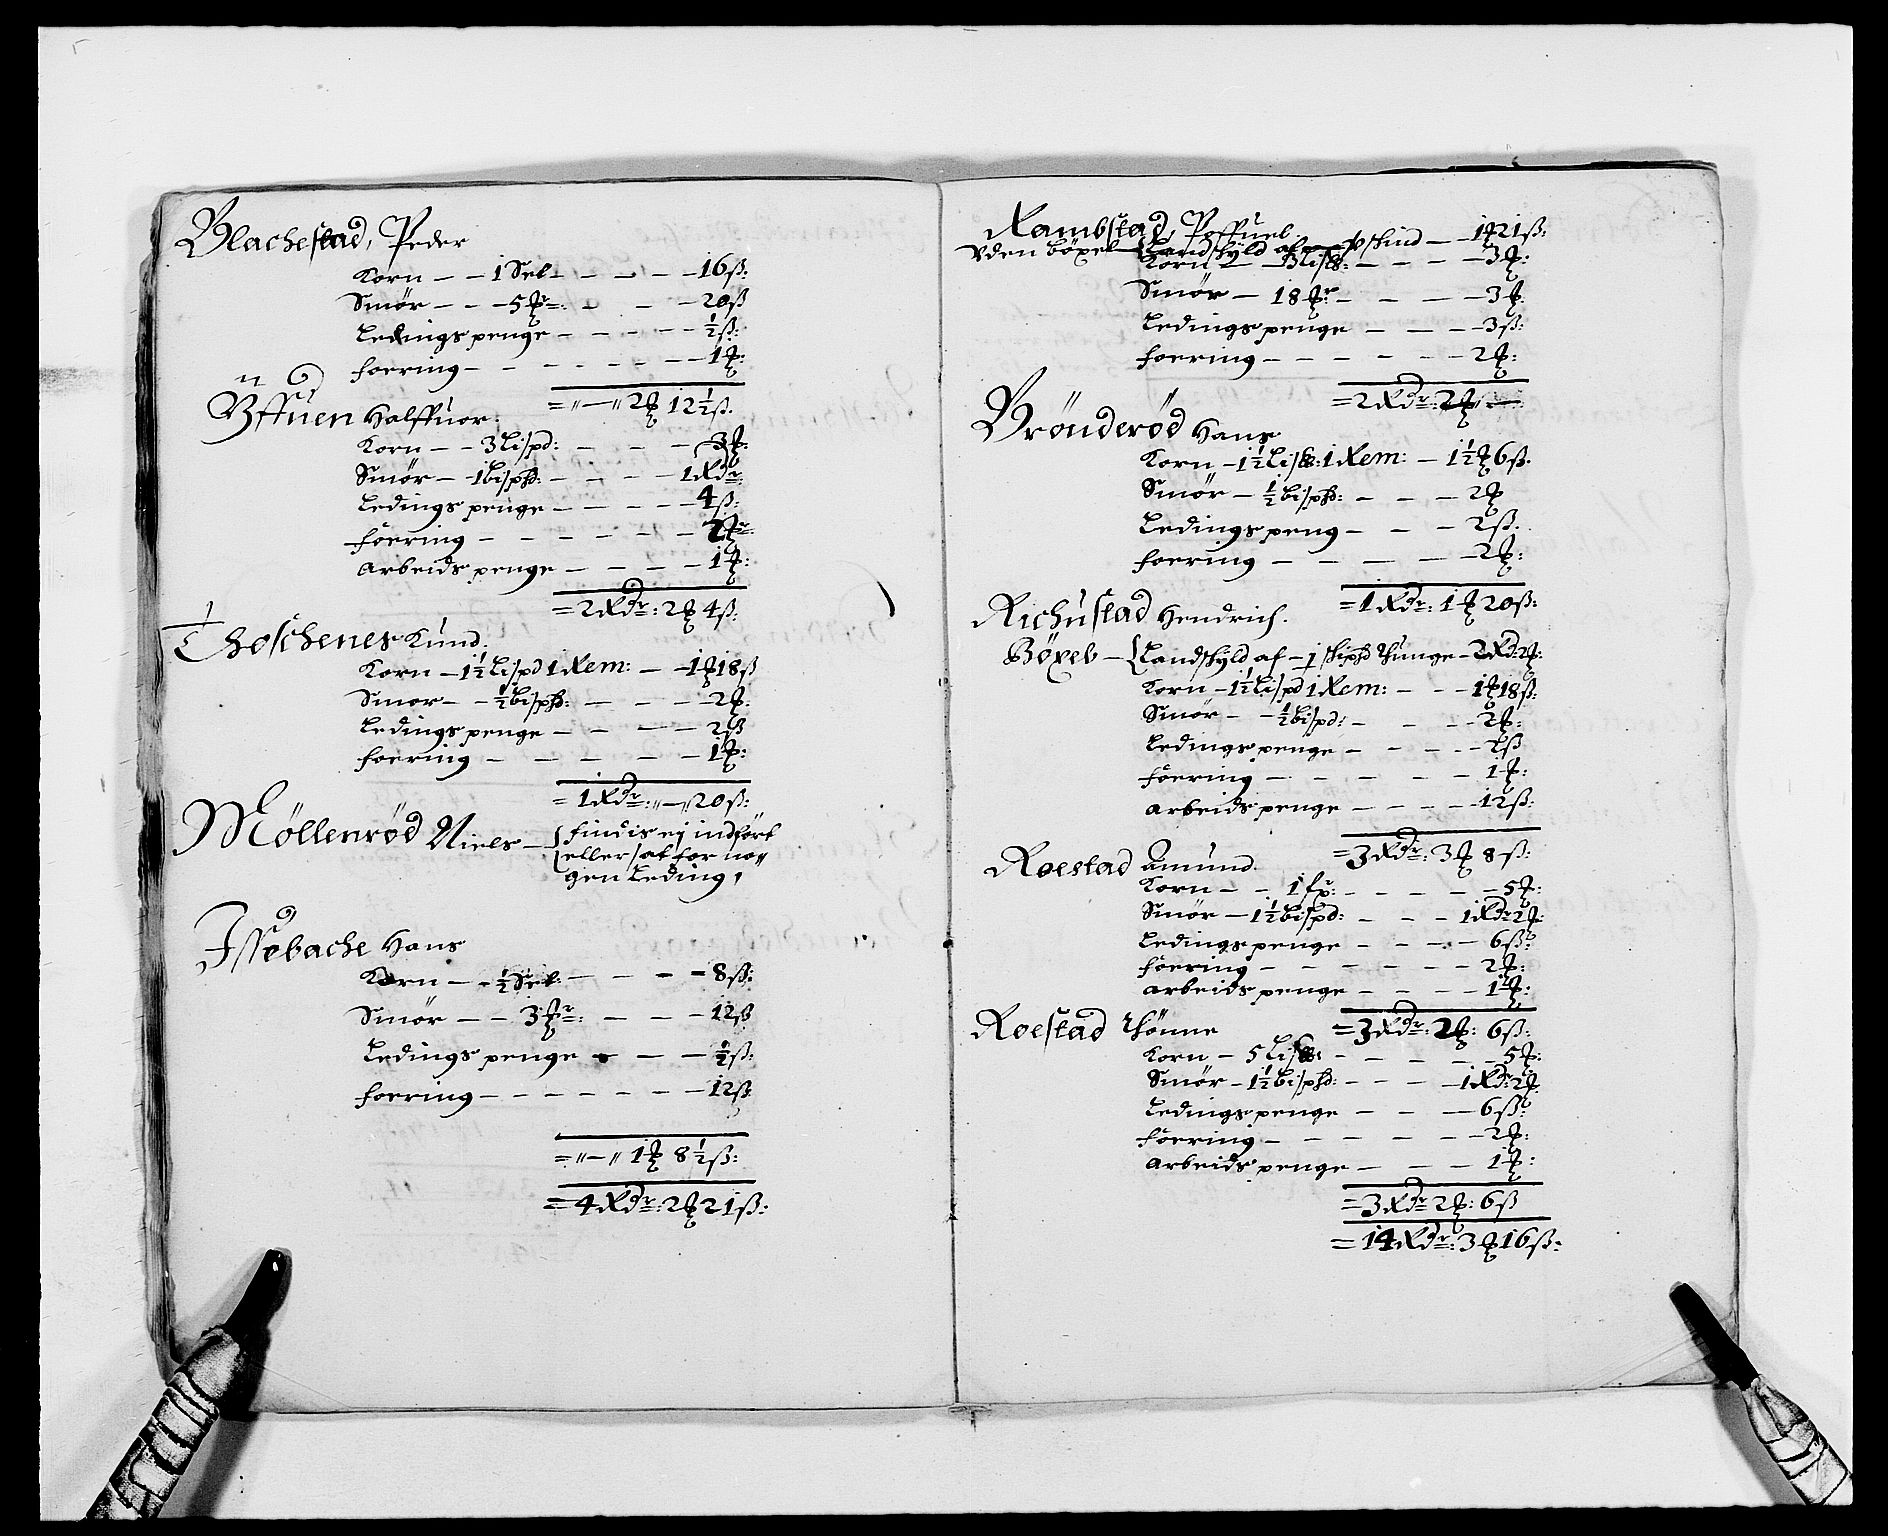 Blachestad, Peder
Korn – – 1 Sel – – – – 16 ß:
Smør – – 5 ₰r: – – 20 ß
Ledings penge – – – – ½ ß:
foering – – – – – – 1 ₰:
= „ – „ 2 ₰ 12½ ß.
Üffuen Halffuor:
Korn – – 3 Lispd: – – – 3 ₰:
Smör – 1 bisphd: – – – 1 Rdr:
Ledings penge – – – – 4 ß:
föering – – – – – – 2 ₰r:
arbeids penge – – – – 1 ₰:
= 2 Rdr: 2 ₰ 4 ß:
Thoschenes Kund.
Korn – 1½ Lispd 1 Rem: – – 1 ₰ 18 ß
Smør – – ½ bisphd: – – – 2 ₰:
Ledings penge – – – – 2 ß
foering – – – – – – 1 ₰:
= 1 Rdr: „ – „ 20 ß:
Møllenrød Niels – findis ej indført
eller sat for no„
gen Leding,
Issebache Hans
Korn – – ½ Sel: – – – – 8 ß:
Smör – – 3 ₰r: – – – 12 ß
Ledings penge – – – ½ ß:
foering – – – – – – – 12 ß
= „ – „ 1 ₰ 8½ ß:
= 4 Rdr: 2 ₰ 21 ß:
Rambstad, Poffuel.
Uden böxel – Landskyld af – – skind – – 1 ₰ 21 ß:
Korn – – 3 Lis℔: – – – – 3 ₰:
Smör – 18 ₰r – – – – 3 ₰
Ledings penge – – – – 3 ß:
foering – – – – – – 2 ₰:
= 2 Rdr: 2 ₰ „ –
Brönderød Hans
Korn – 1½ Lis℔: 1 Rem: – 1½ ₰ 6 ß.
Smör – ½ bisphd: – – – 2 ₰
Ledings peng – – – 2 ß.
foering – – – – – 2 ₰:
= 1 Rdr: 1 ₰ 20 ß:
Richustad Hendrich.
Böxel – Landskyld af – 1 skiphd thunge – 2 Rd: 2 ₰:
Korn – 1½ Lispd 1 Rem: – – – 1 ₰ 18 ß:
Smör – – ½ bispd: – – – – 2 ₰:
Ledings penge – – – – – 2 ß
föering – – – – – – 1 ₰:
arbeids penge – – – – – 12 ß:
= 3 Rdr: 3 ₰ 8 ß:
Roestad Amund.
Korn – – 1 fr: – – – – – 5 ₰:
Smör – 1½ bispd: – – – 1 Rdr 2 ₰:
Ledings penge – – – – 6 ß:
föering – – – – – – 2 ₰:
arbeids penge – – – – 1 ₰:
= 3 Rdr: 2 ₰: 6 ß:
Roestad Thönne
Korn – 5 Lis℔: – – – – – 5 ₰:
Smör – 1½ bisphd: – – – – 1 Rdr 2 ₰
Ledings penge – – – 6 ß:
föering – – – – – – 2 ₰:
arbeids penge – – – 1 ₰:
= 3 Rdr 2 ₰: 6 ß
= 14 Rdr: 3 ₰ 16 ß: